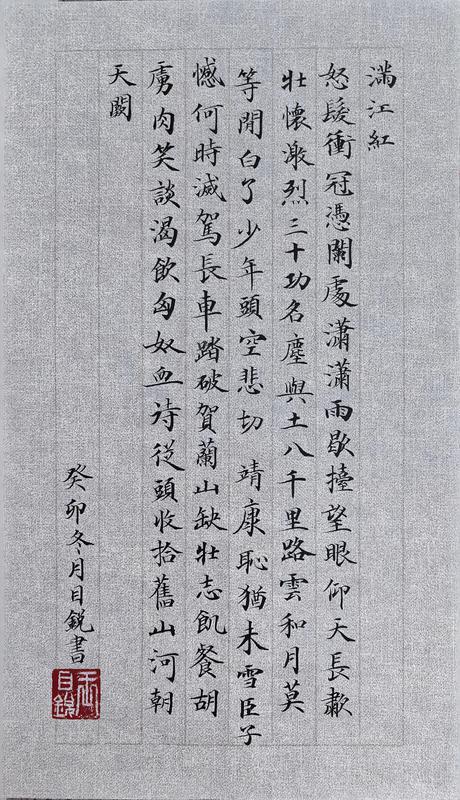 滿江紅
怒髮衝冠憑闌處瀟瀟雨歇擡望眼仰天長歗
壯懷激烈三十功名塵與土八千里路雲和月莫
等閒白了少年頭空悲切 靖康恥猶未雪臣子
憾何時滅駕長車踏破賀蘭山缺壯志飢餐胡
虜肉笑談渴飲匈奴血待從頭收拾舊山河朝
天闕
癸卯冬月目銳書
目銳